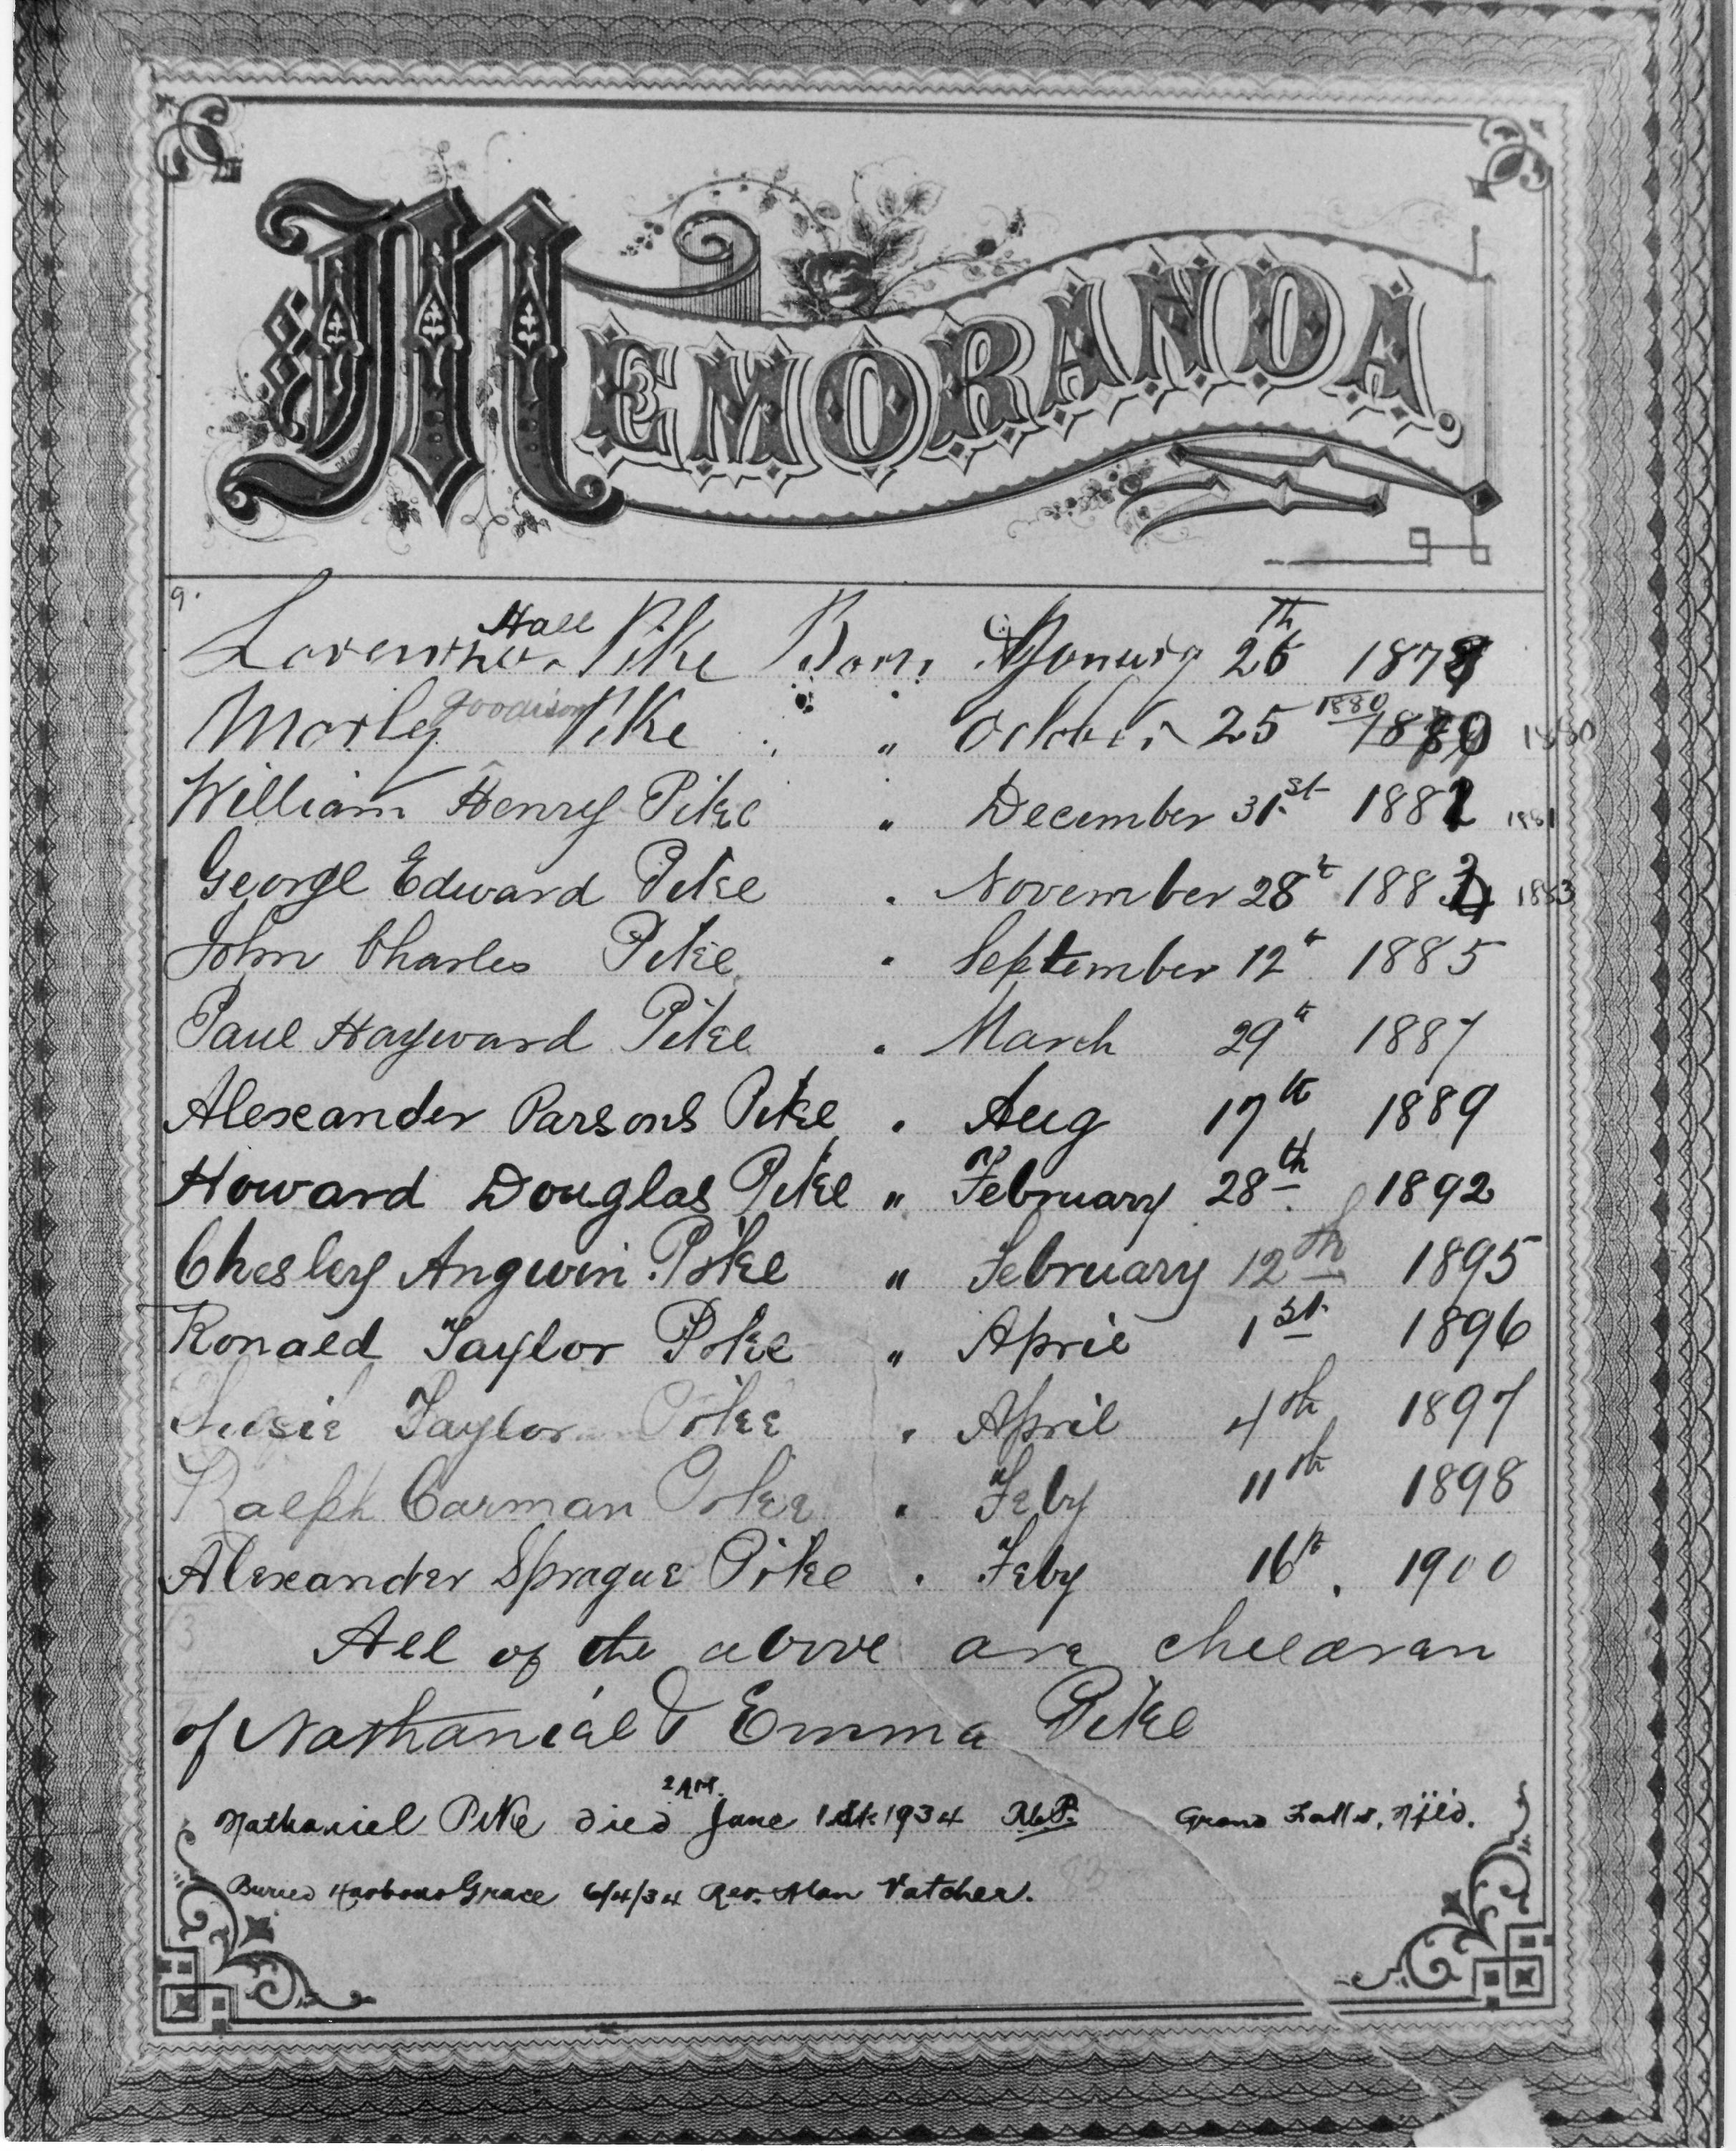 MEMORANDA.
9.
Hall
Lorenzo Pike Born January 26 Th 1878
Morley Goodison Pike " " October 25 1880 1880 1880
William Henry Pike " December 31st 1881 1881
George Edward Pike . November 28t 1883 1883
John Charles Pike . September 12t 1885
Paul Hayward Pike . March 29t 1887
Alexander Parsons Pike . Aug 17th 1889
Howard Douglas Pike " February 28th 1892
Chesley Angwin Pike " February 12th 1895
Ronald Taylor Pike " April 1st 1896
Susie Taylor Pike . April 4th 1897
Ralph Carman Pike . Feby 11th 1898
Alexander Sprague Pike . Feby 16th 1900
All of the above are children
of Nathaniel & Emma Pike
2 AM.
Nathaniel Pike died June 1st 1934 Grand Falls, Nfld.
Buried Harbour Grace 6/4/34 Rev. Alan Vatcher.